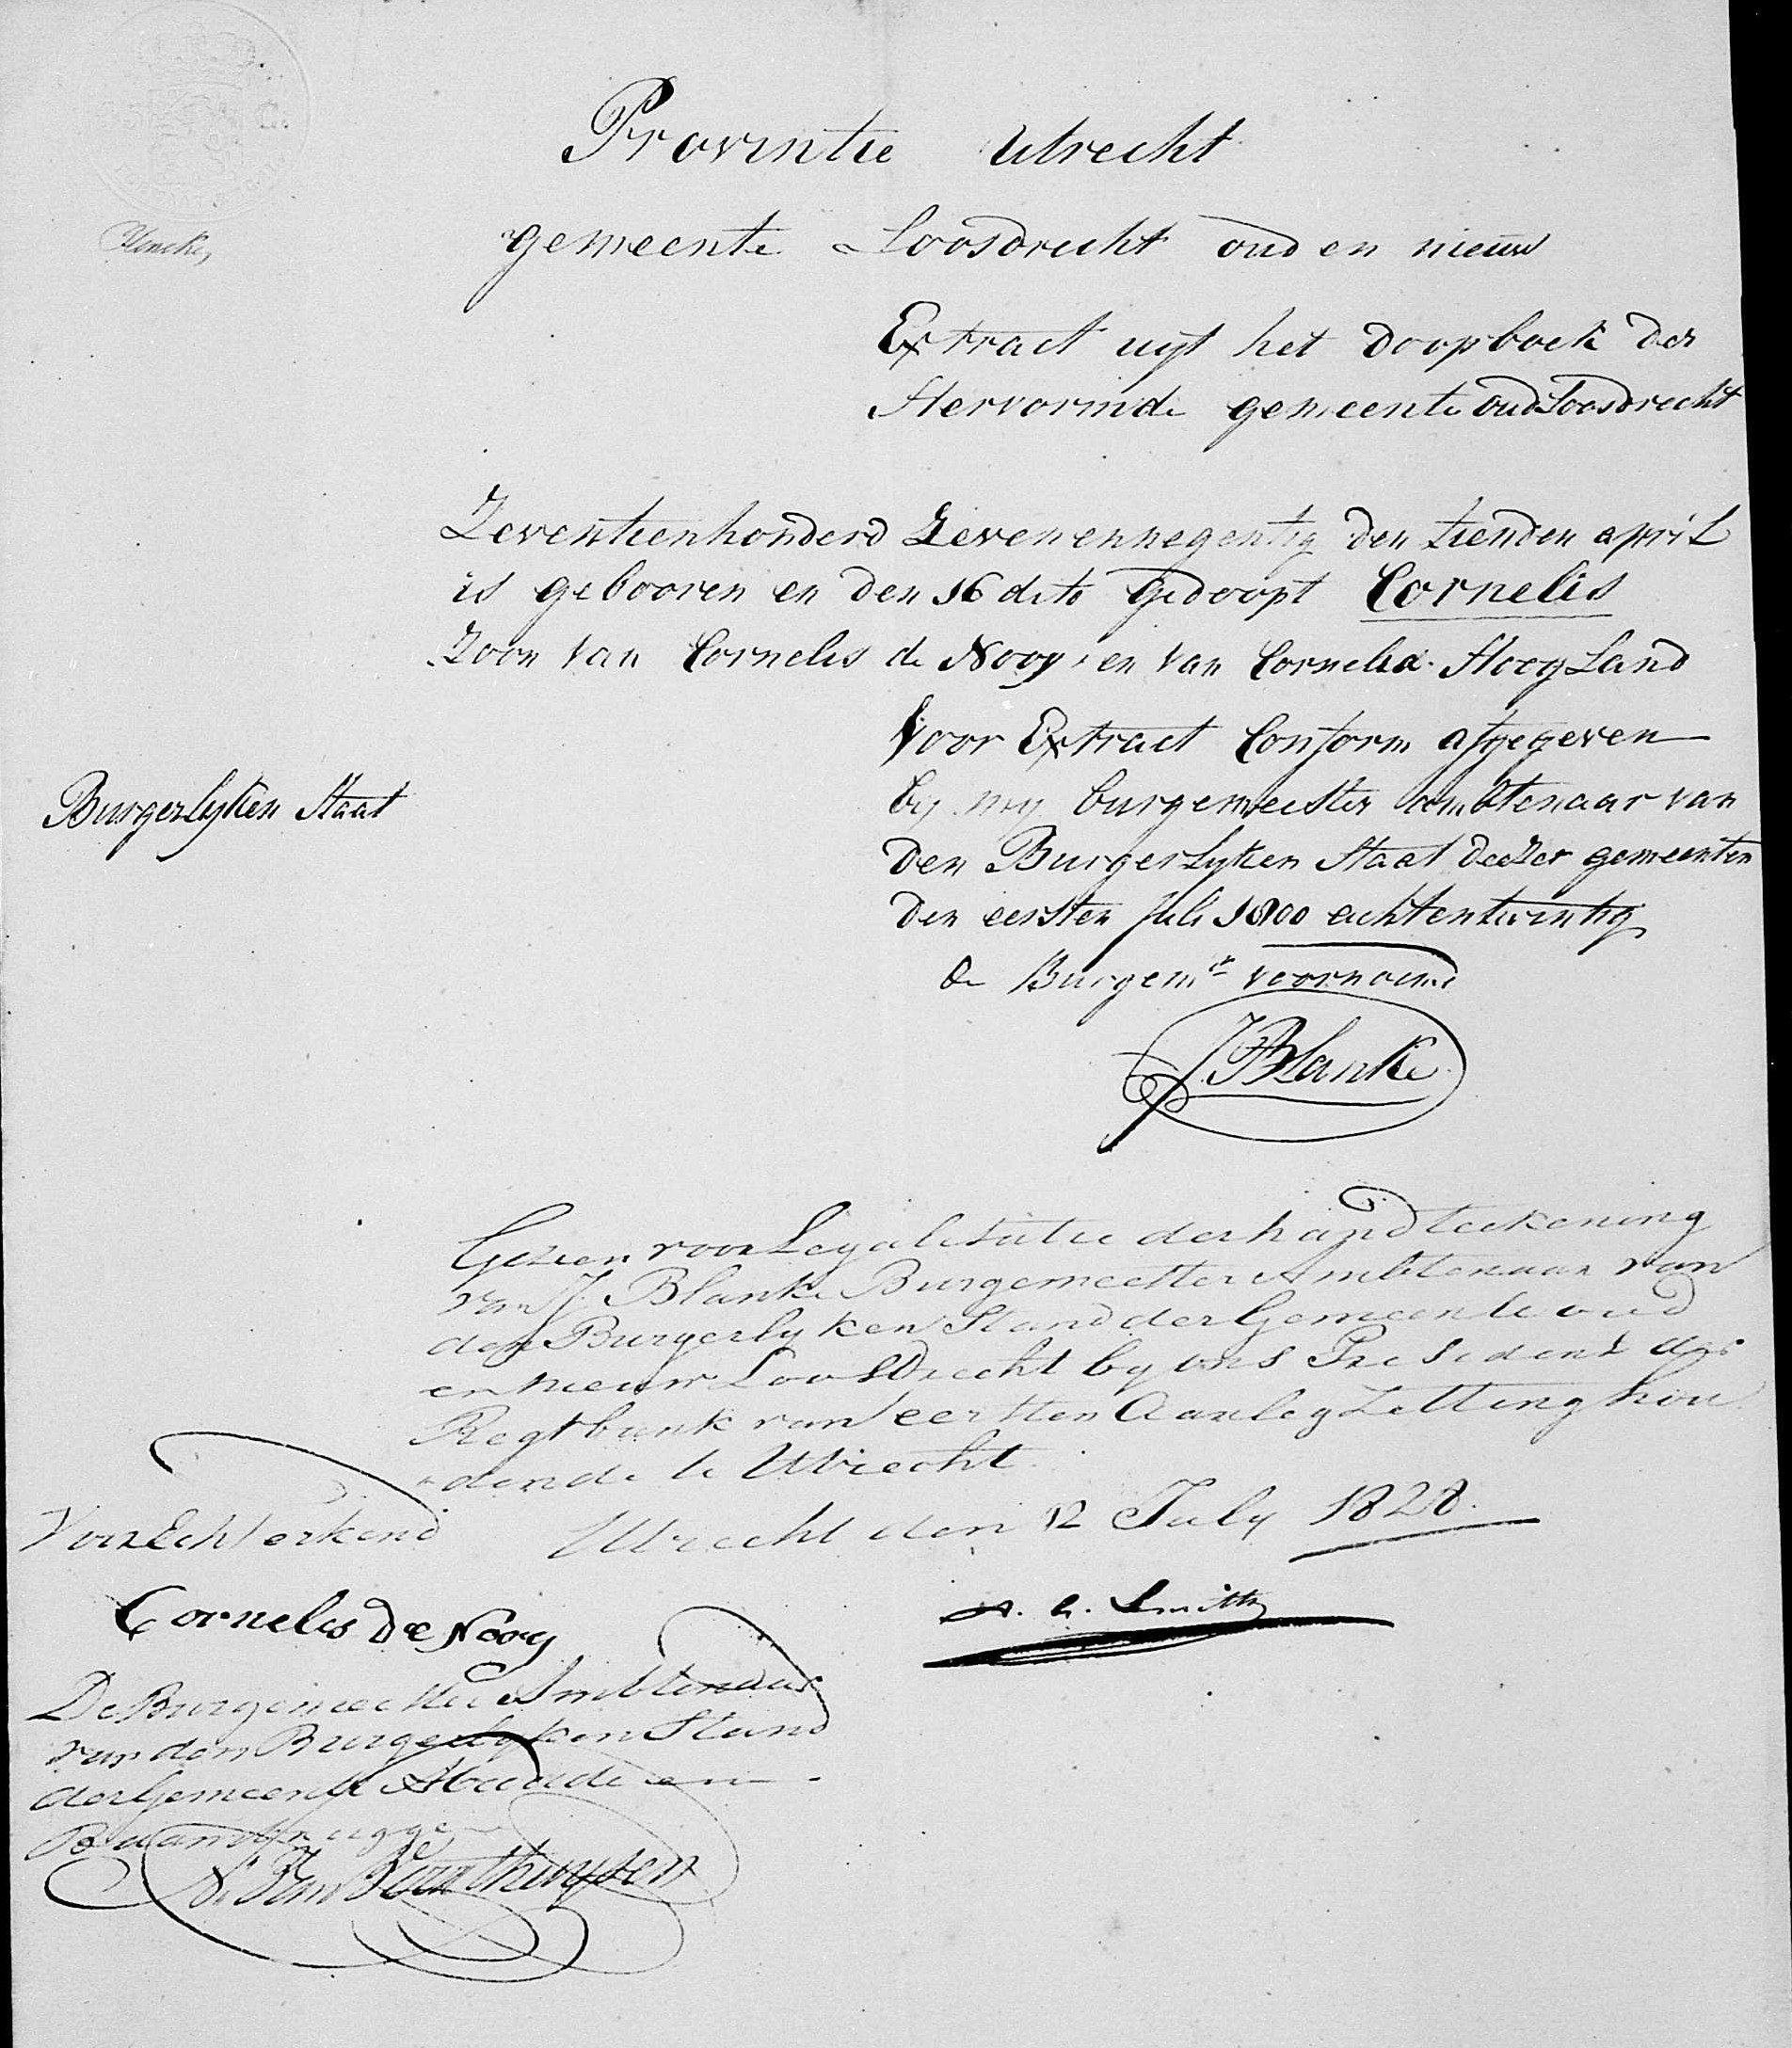 Provintie Utrecht
gemeente Loosdrecht oud en nieuw
Extract uyt het doopboek der
Hervormde gemeente oud Loosdrecht
Zeventienhonderd Zevenennegentig den tienden april
is gebooren en den 16 dito gedoopt Cornelis
Zoon van Cornelis de Nooy en van Cornelia Hoogland
Voor Extract Conform afgegeven
by my burgemeester ambtenaar van
Burgerlyken Staat
den Burgerlyken Staat deezer gemeenten
den eersten Juli 1800 achtentwintig
de Burgemr voornoemd
J. Blanke
Gezien voor Legalisatie der handteekening
van J Blanke Burgemeester Ambtenaar van
den Burgerlyken Stand der Gemeente oud
en nieuw Loosdrecht by ons President der
Regtbank van eersten Aanleg Zitting hou
dende te Utrecht
Utrecht den 12 July 1828.
Voor Echt erkend
Cornelis De Nooy
A. G. Smith
De Burgemeester Ambtenaar
van den Burgerlyken Stand
der Gemeente Abcoude en
Baambrugge